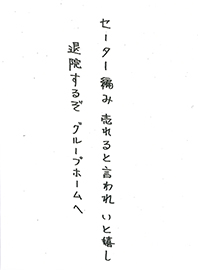 セーター編み売れると言われいと嬉し
退院するぞグループホームへ